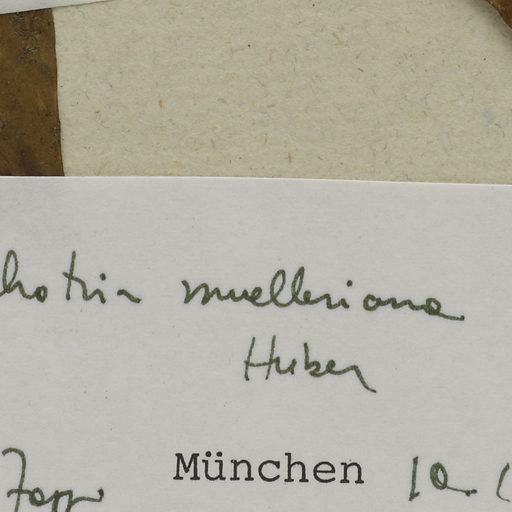 hotria muelleriana
Huber
Zappi München 10.